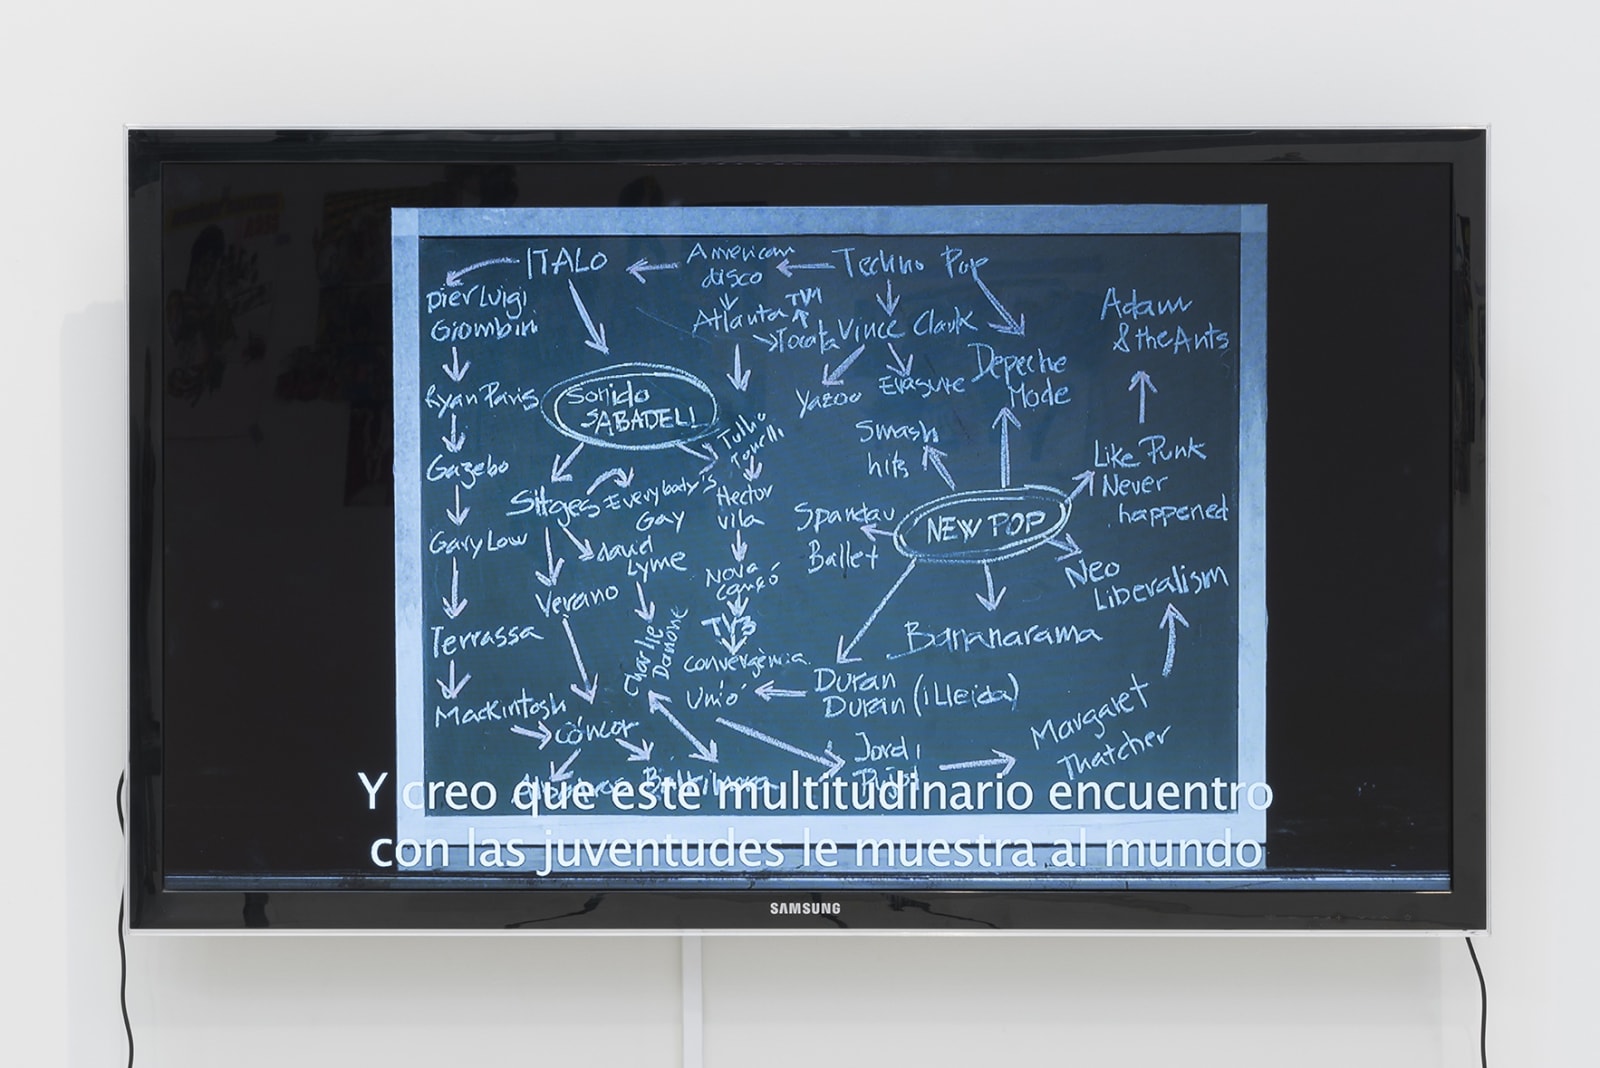 ITALO
American
disco
Techno Pop
pier Luigi
Giombini
Atlanta
TV1
Tocata
Vince Clark
Adam
& the Ants
Ryan Paris
Sonido
SABADELL
Yazoo
Erasure
Depeche
Mode
Tullio
Gazebo
Smash
hits
Like Punk
Never
happened
Sitges
Everybody's
Gay
Hector
vila
Spandau
Ballet
NEW POP
Gary Low
david
Lyme
Nova
cançó
Neo
Liberalism
Verano
Terrassa
Charlie
Danone
TV3
Convergència
Unió
Bananarama
Duran
Duran (i Lleida)
Mackintosh
cóncor
Jordi
Pujol
Margaret
Thatcher
Y creo que este multitudinario encuentro
con las juventudes le muestra al mundo
SAMSUNG